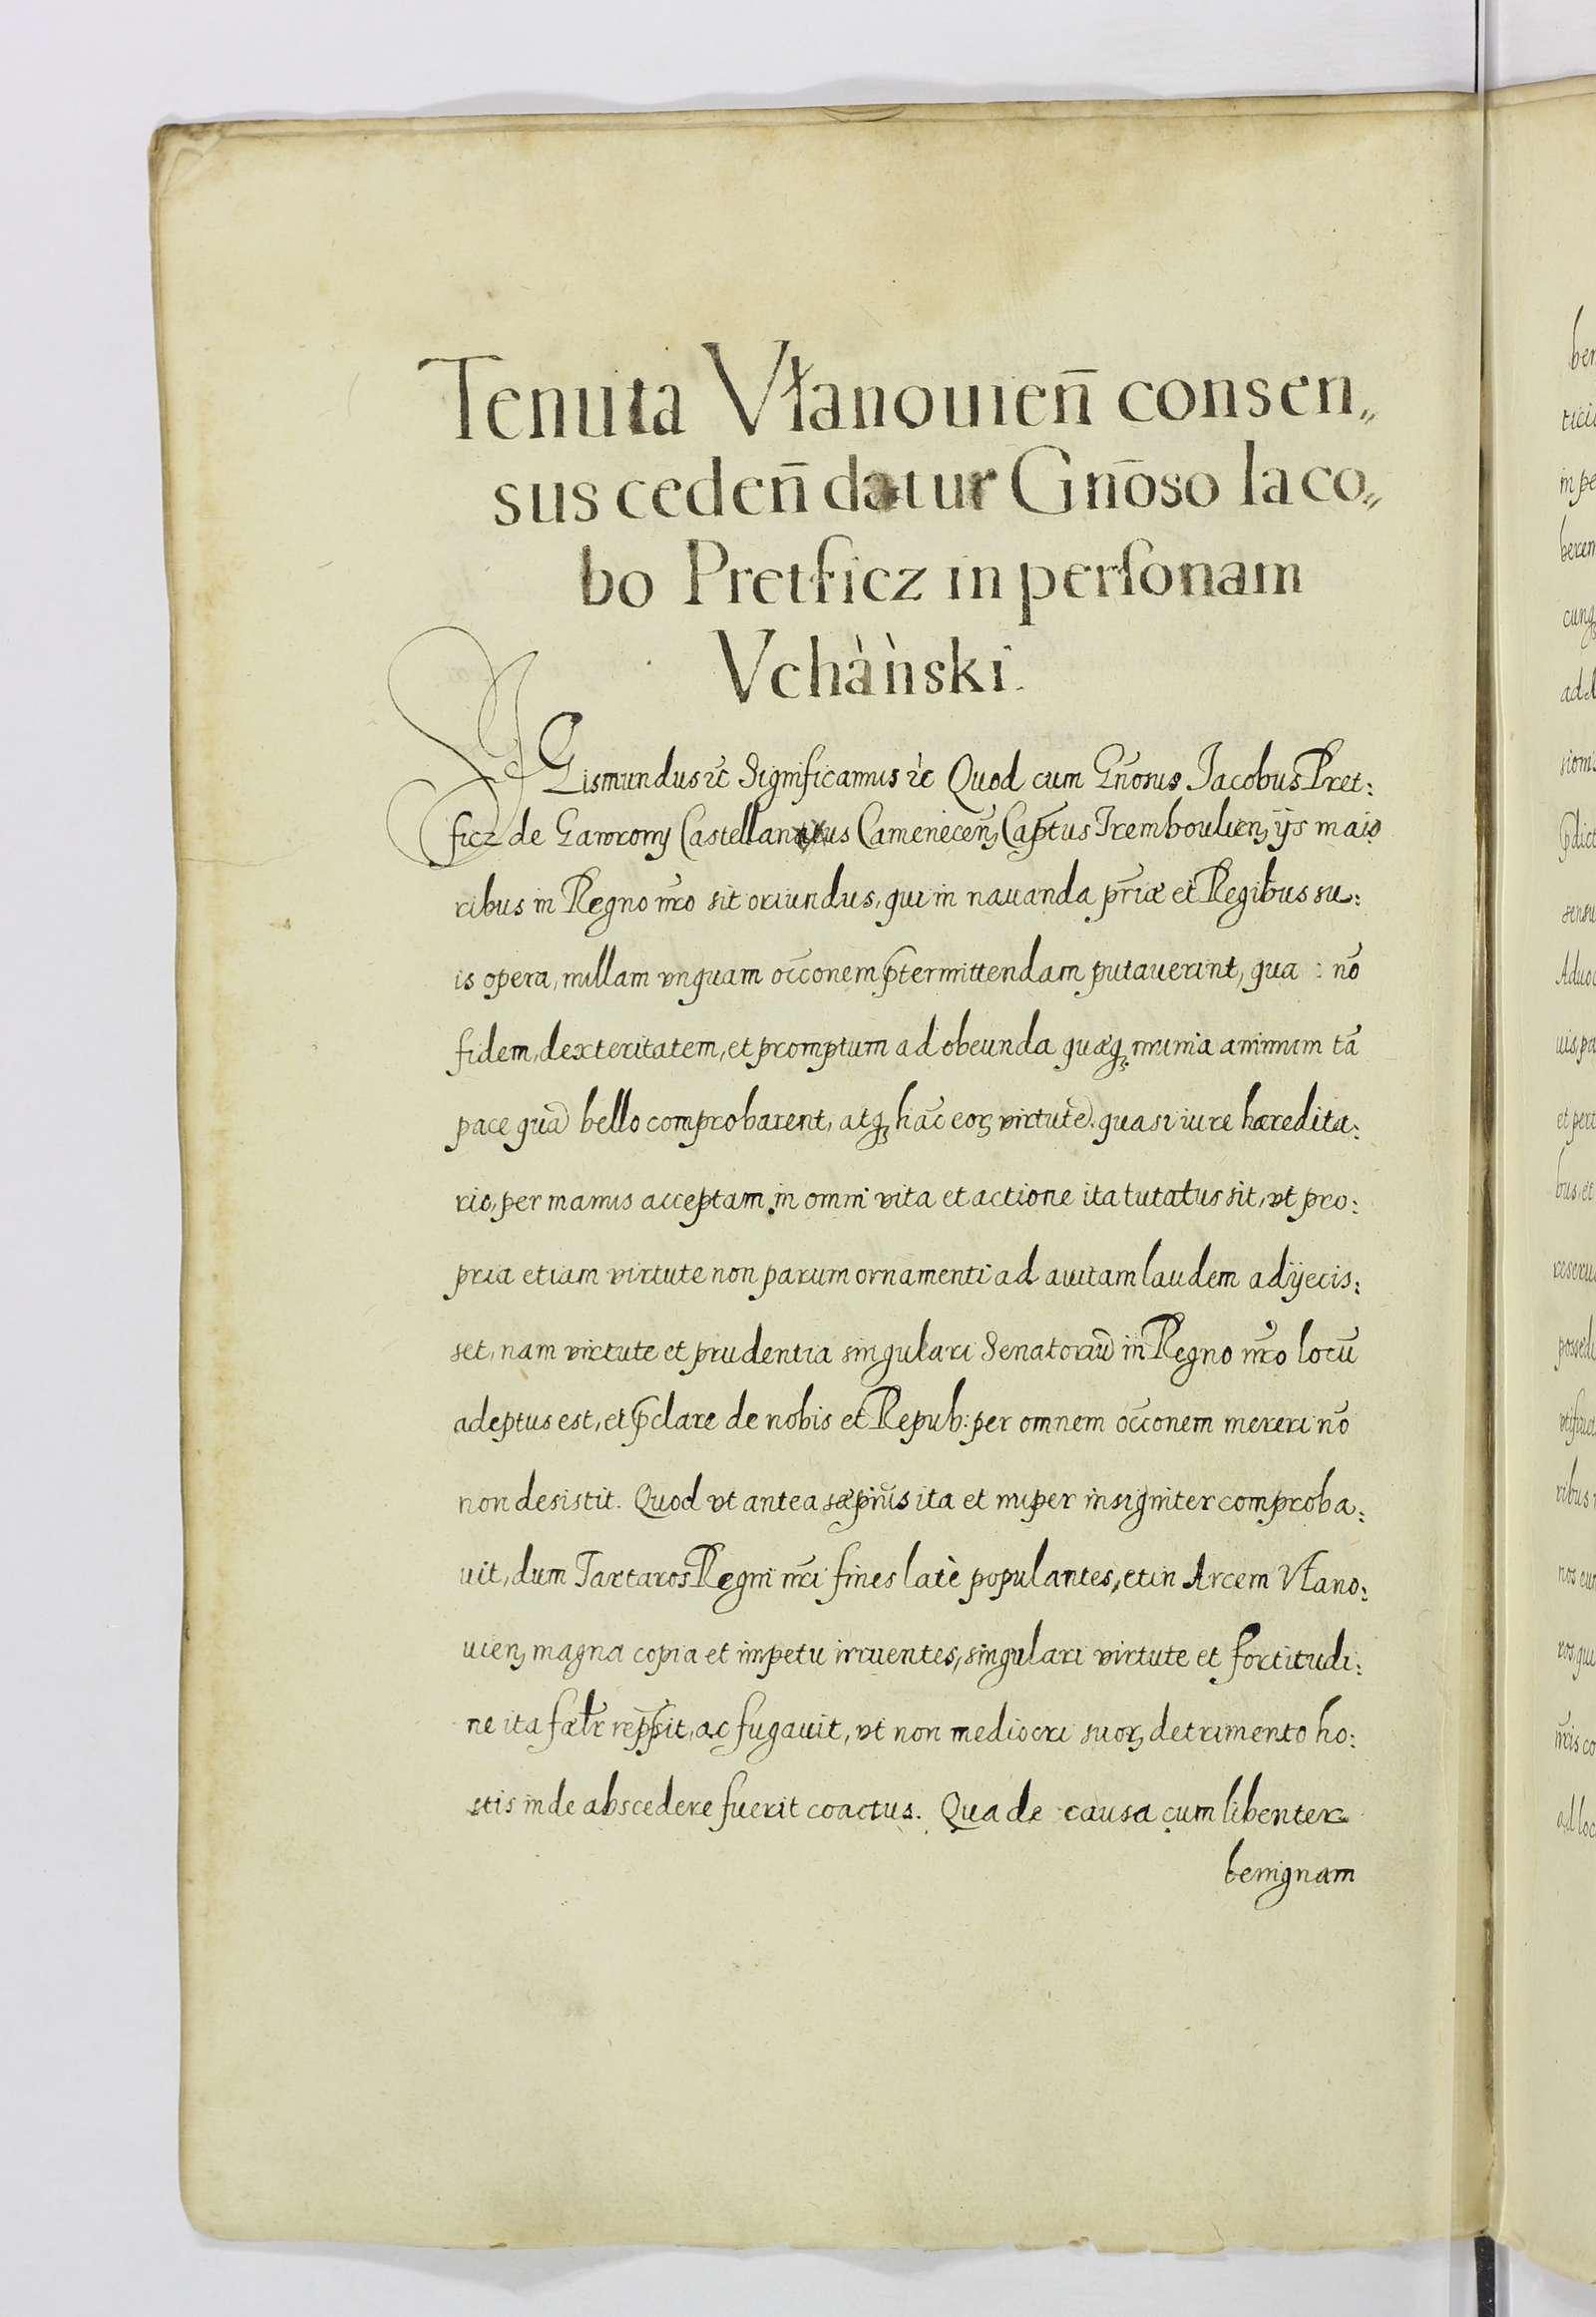 Tenuta Vłanouien̄ consen„
sus ceden̄ datur Gn̄oso Iaco„
bo Pretficz in perſonam
Vchàǹski.
Sigismundus ꝛc̄ Significamus ꝛc̄ Quod cum Gn̄osus Jacobus Pret:
ficz de Gawrony Castellanus Camenecen̄, Cap̄tus Tremboulien, ijs maio
ribus in Regno nr̄o sit oriundus, qui in nauanda pr̄iæ et Regibus su:
is opera, nullam vnquam occ̄onem p̄termittendam putauerint, qua : nō
fidem, dexteritatem, et promptum ad obeunda quæq₃ munia animum tā
pace quā bello comprobarent, atq₃ hāc eoꝝ virtutē quasi iure hæredita:
rio, per manus acceptam in omni vita et actione ita tutatus sit, vt pro:
pria etiam virtute non parum ornamenti ad auitam laudem adijecis:
set, nam virtute et prudentia singulari Senatoriū in Regno nr̄o locū
adeptus est, et p̄clare de nobis et Repub: per omnem occ̄onem mereri nō
non desistit. Quod vt antea sæpius ita et nuper insigniter comproba:
uit, dum Tartaros Regni nr̄i fines latè populantes, et in Arcem Vłano:
uien, magna copia et impetu irruentes, singulari virtute et fortitudi:
ne ita fælr̄ rep̄ssit, ac fugauit, vt non mediocri suoꝝ detrimento ho:
stis inde abscedere fuerit coactus. Qua de causa cum libenter
benignam